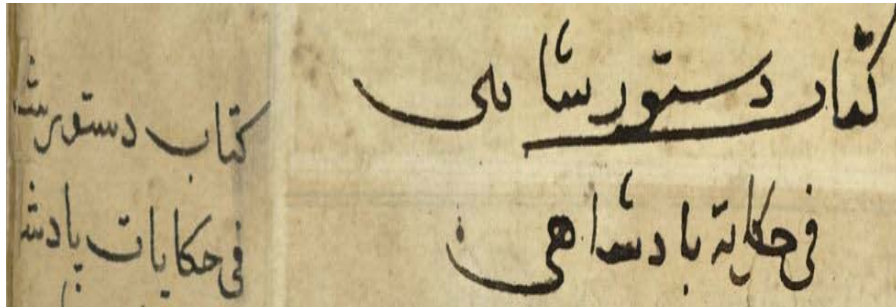 كتاب دستور شاهى
فى حكاية پادشاهى
كتاب دستور شا
فى حكايات پادشا